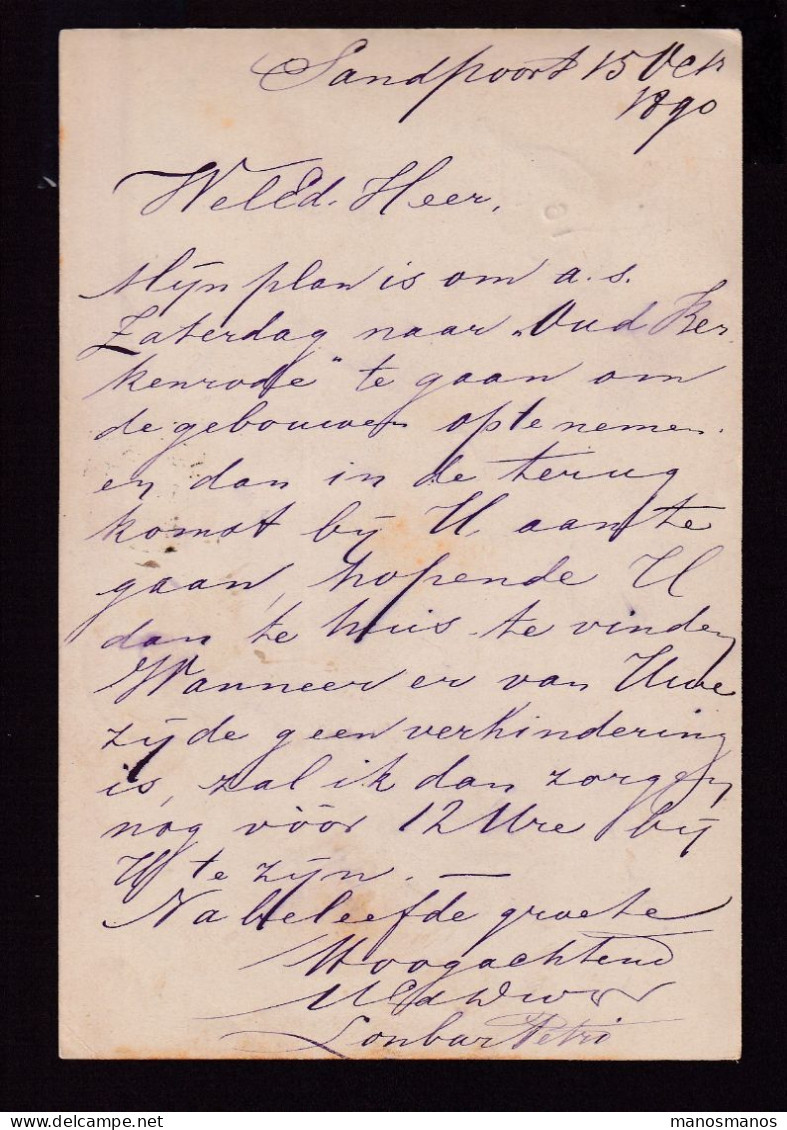 Sandpoort 15 Oct
1890
WelEd. Heer,
Mijn plan is om a.s.
Zaterdag naar „Oud Ber
kenrode" te gaan om
de gebouwen opte nemen
en dan in de terug
komst bij U. aan te
gaan, hopende U
dan te huis te vinden
Wanneer er van Uwe
zijde geen verhindering
is, zal ik dan zorgen
nog vóór 12 Ure bij
U te zijn. —
Na beleefde groete
Hoogachtend
UEdDw
Petri
manosmanos